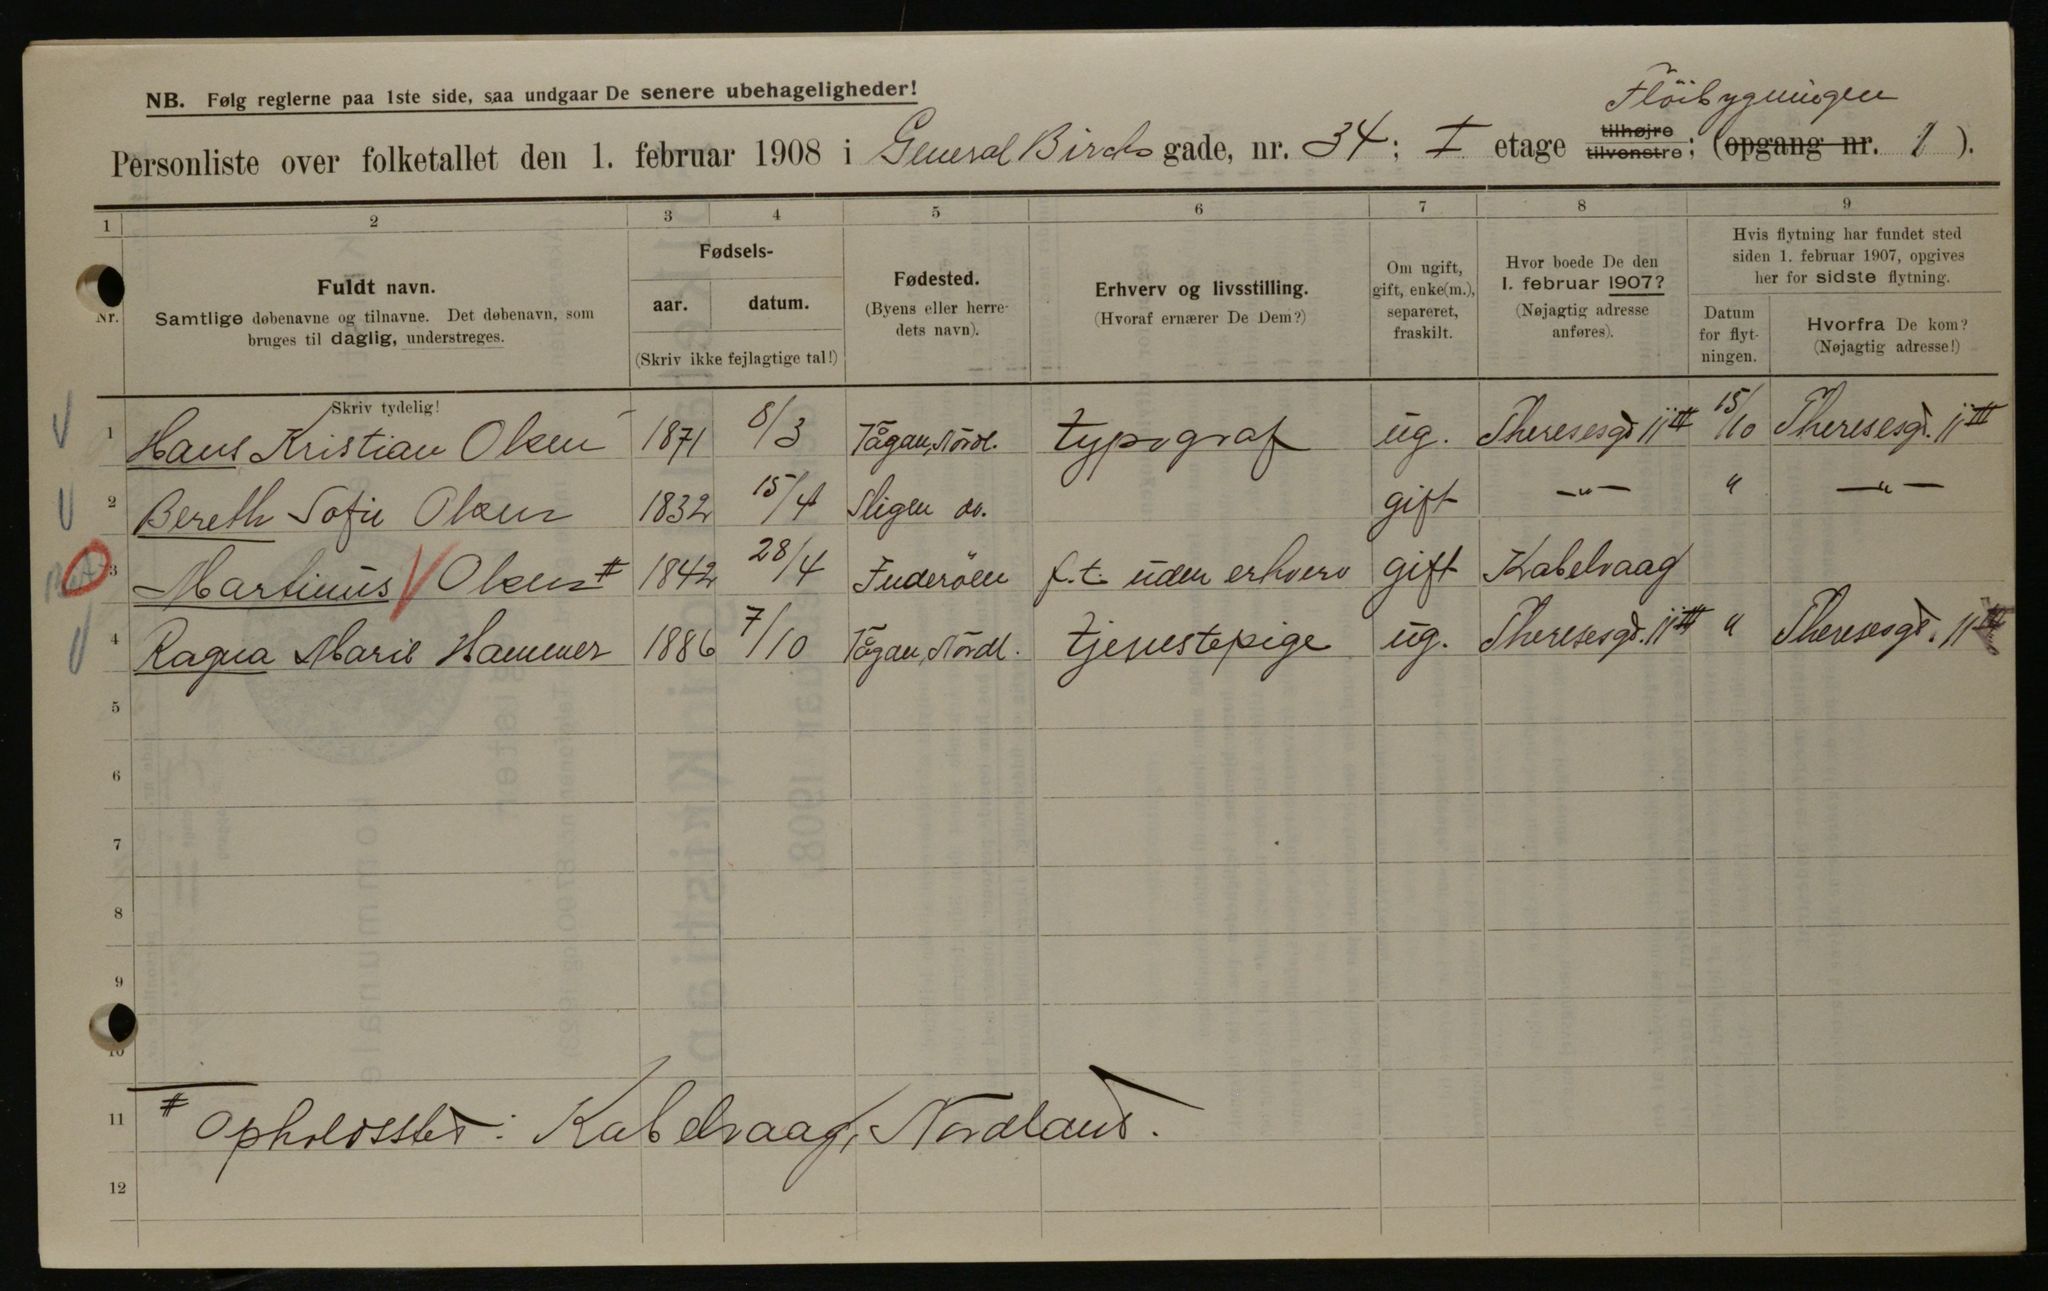 NB. Følg reglerne paa 1ste side, saa undgaar De senere ubehageligheder!
Fløibygningen
Personliste over folketallet den 1. februar 1908 i General Birchs gade, nr. 34; I etage tilhøjre tilvenstre; (opgang nr. 1).
1 2 3 4 5 6 7 8 9
Nr.
Fuldt navn.
Samtlige døbenavne og tilnavne. Det døbenavn, som
bruges til daglig, understreges.
Skriv tydelig!
Fødsels-
aar. datum.
(Skriv ikke fejlagtige tal!)
Fødested.
(Byens eller herre-
dets navn).
Erhverv og livsstilling.
(Hvoraf ernærer De Dem?)
Om ugift,
gift, enke(m.),
separeret,
fraskilt.
Hvor boede De den
1. februar 1907?
(Nøjagtig adresse
anføres).
Hvis flytning har fundet sted
siden 1. februar 1907, opgives
her for sidste flytning.
Datum
for flyt-
ningen.
Hvorfra De kom?
(Nøjagtig adresse!)
1 Hans Kristian Olsen 1871 8/3 Nordl. typograf ug. Theresesgd 11 III 15/10 Theresesgd. 11 III
2 Bereth Sofie Olsen 1832 15/4 do. gift —„— " —„—
3 Martinus Olsen # 1842 28/4 Inderöen f.t. uden erhverv gift Kabelvaag
4 Ragna Marie Hammer 1886 7/10 Nordl. tjenestepige ug. Theresesgd. 11 III " Theresesgd. 11
5
6
7
8
9
10
11
12
# Opholdssted: Kabelvaag, Nordland.